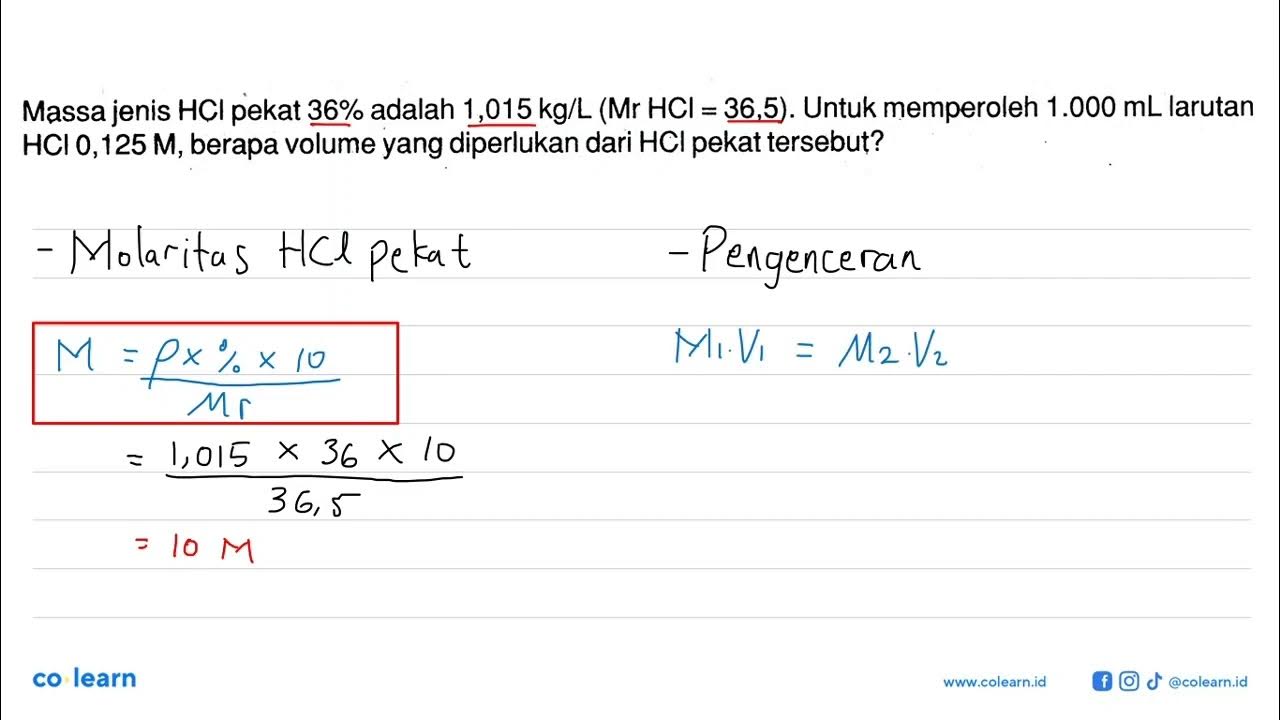 Massa jenis HCl pekat 36% adalah 1,015 kg/L (Mr HCl = 36,5). Untuk memperoleh 1.000 mL larutan
HCl 0,125 M, berapa volume yang diperlukan dari HCl pekat tersebut?
- Molaritas HCl pekat
M = ρ x % x 10
Mr
= 1,015 x 36 x 10
36,5
= 10 M
- Pengenceran
M1.V1 = M2.V2
co learn
www.colearn.id
@colearn.id